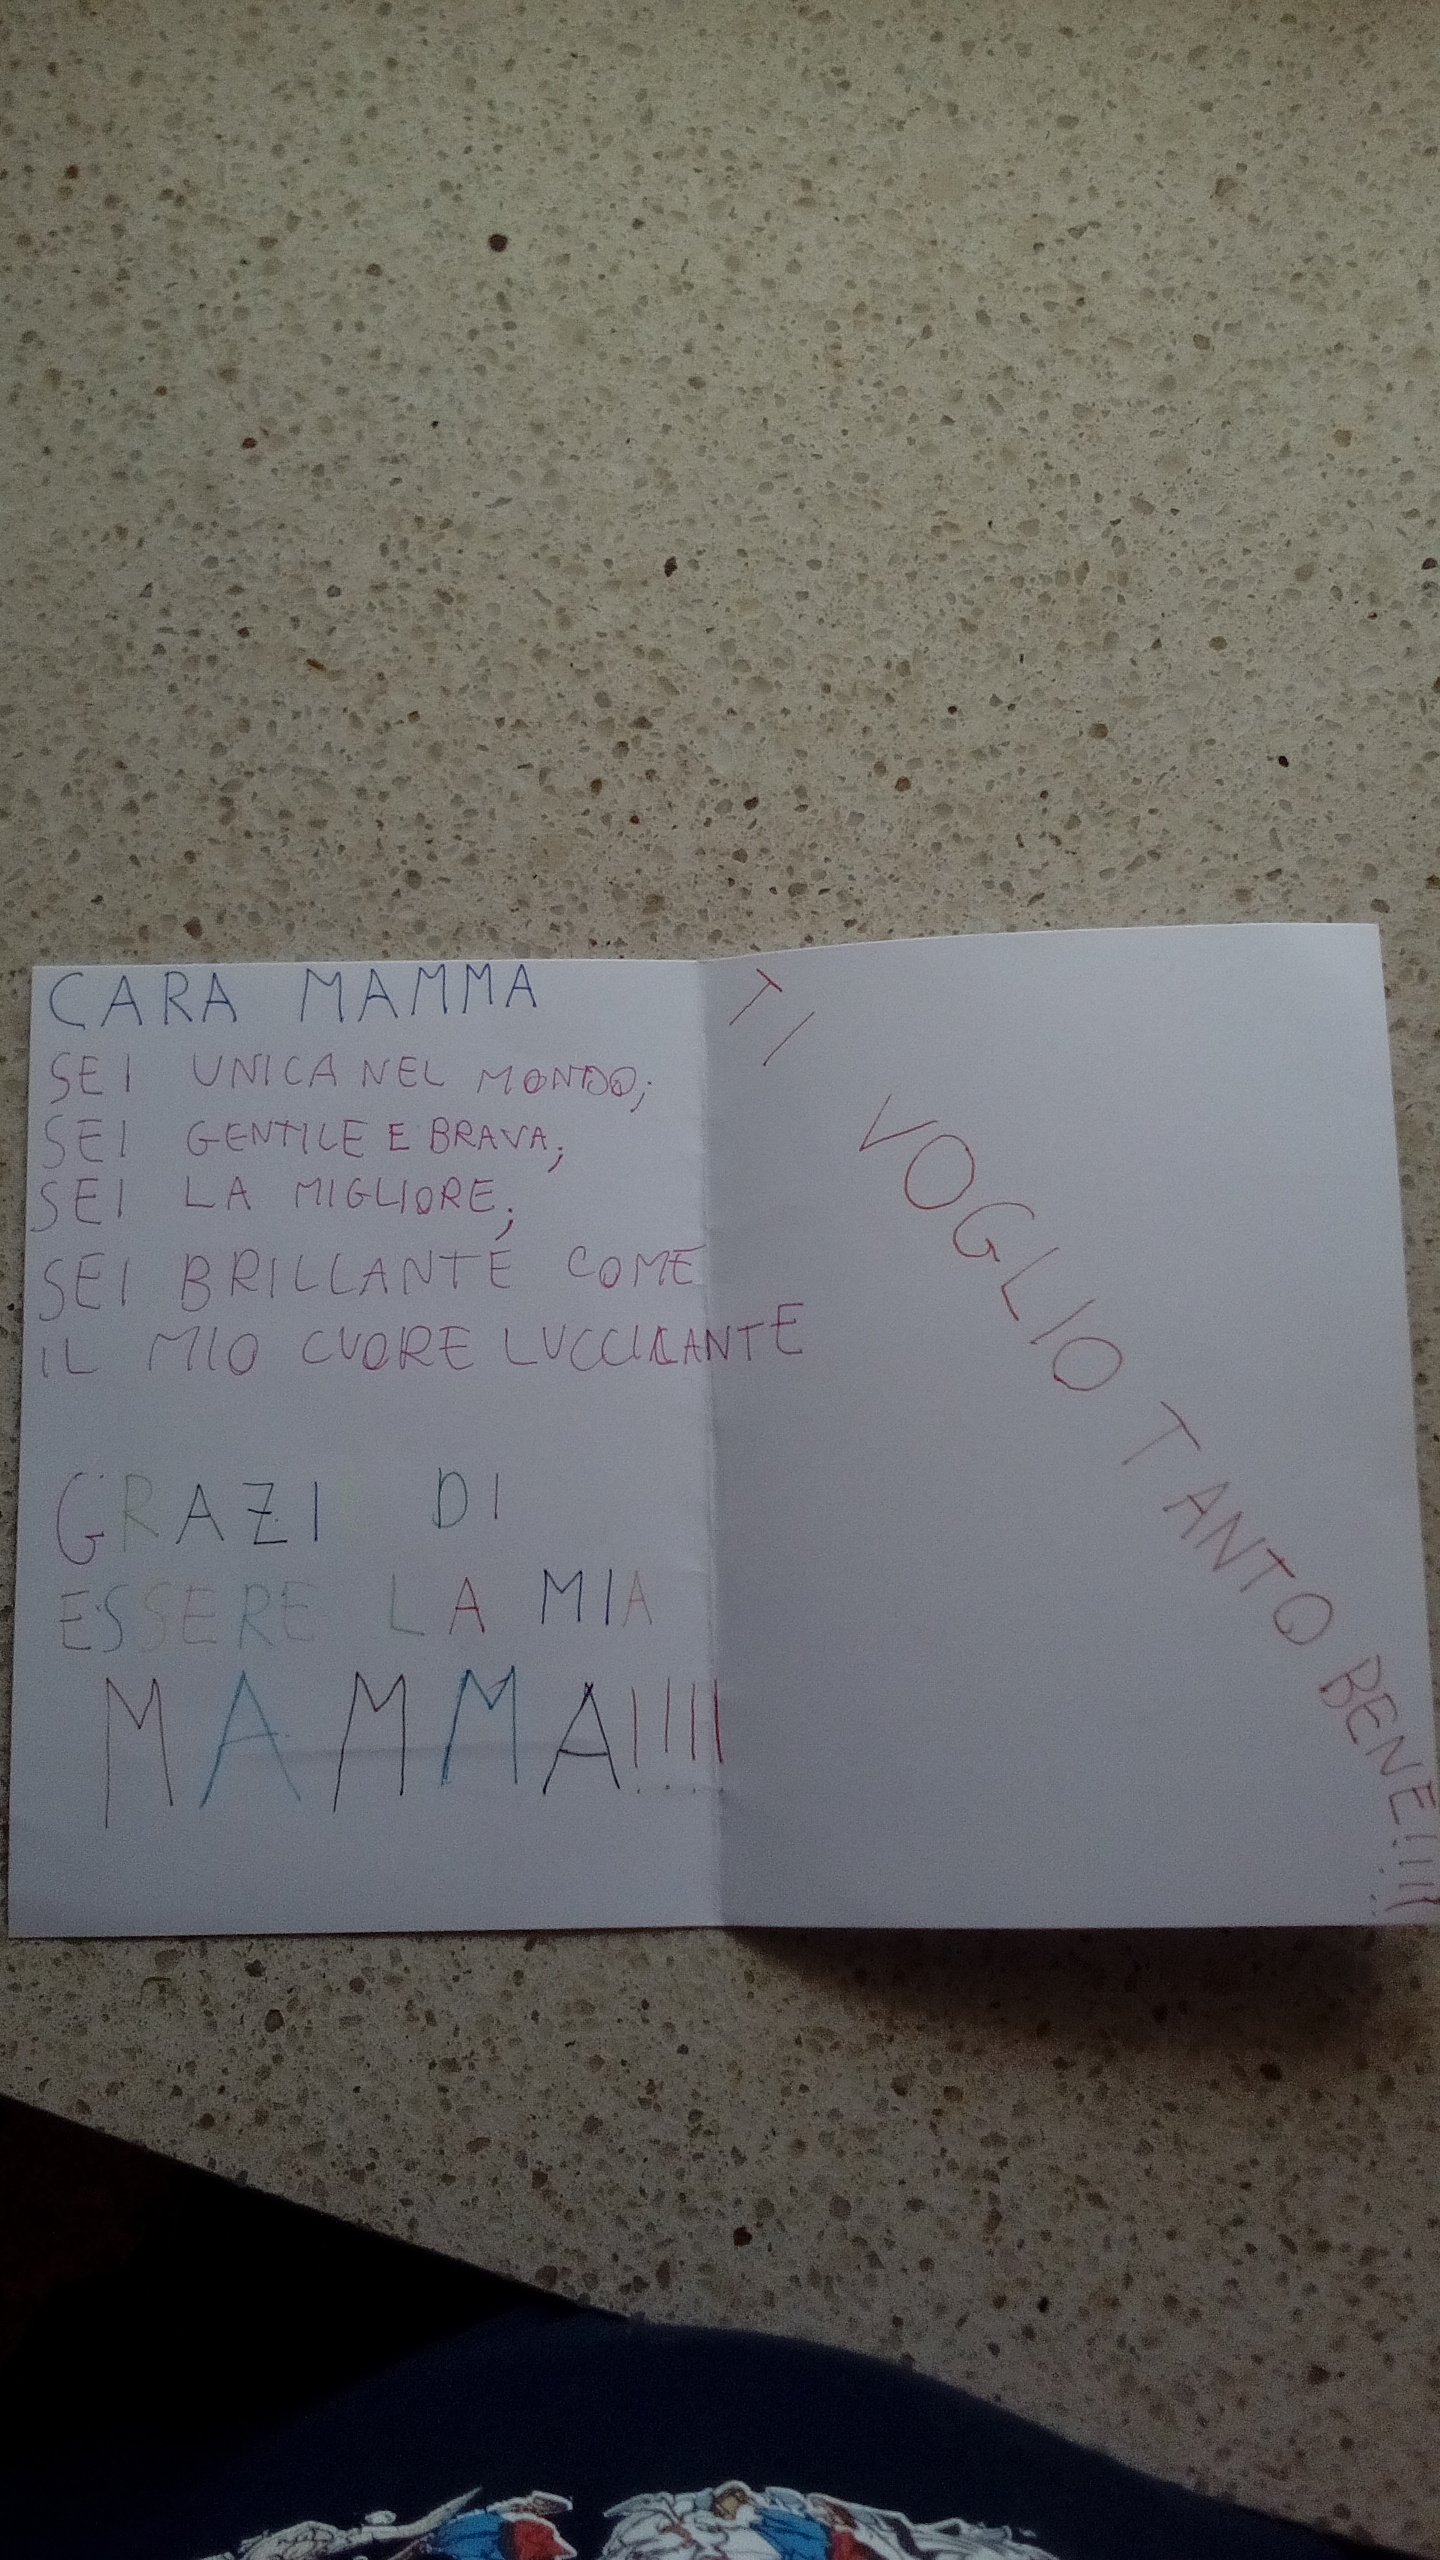 CARA MAMMA
SEI UNICA NEL MONDO;
SEI GENTILE E BRAVA;
SEI LA MIGLIORE;
SEI BRILLANTE COME
IL MIO CUORE LUCCICANTE
GRAZI DI
ESSERE LA MIA
MAMMA!!!!
TI VOGLIO TANTO BENE!!!!